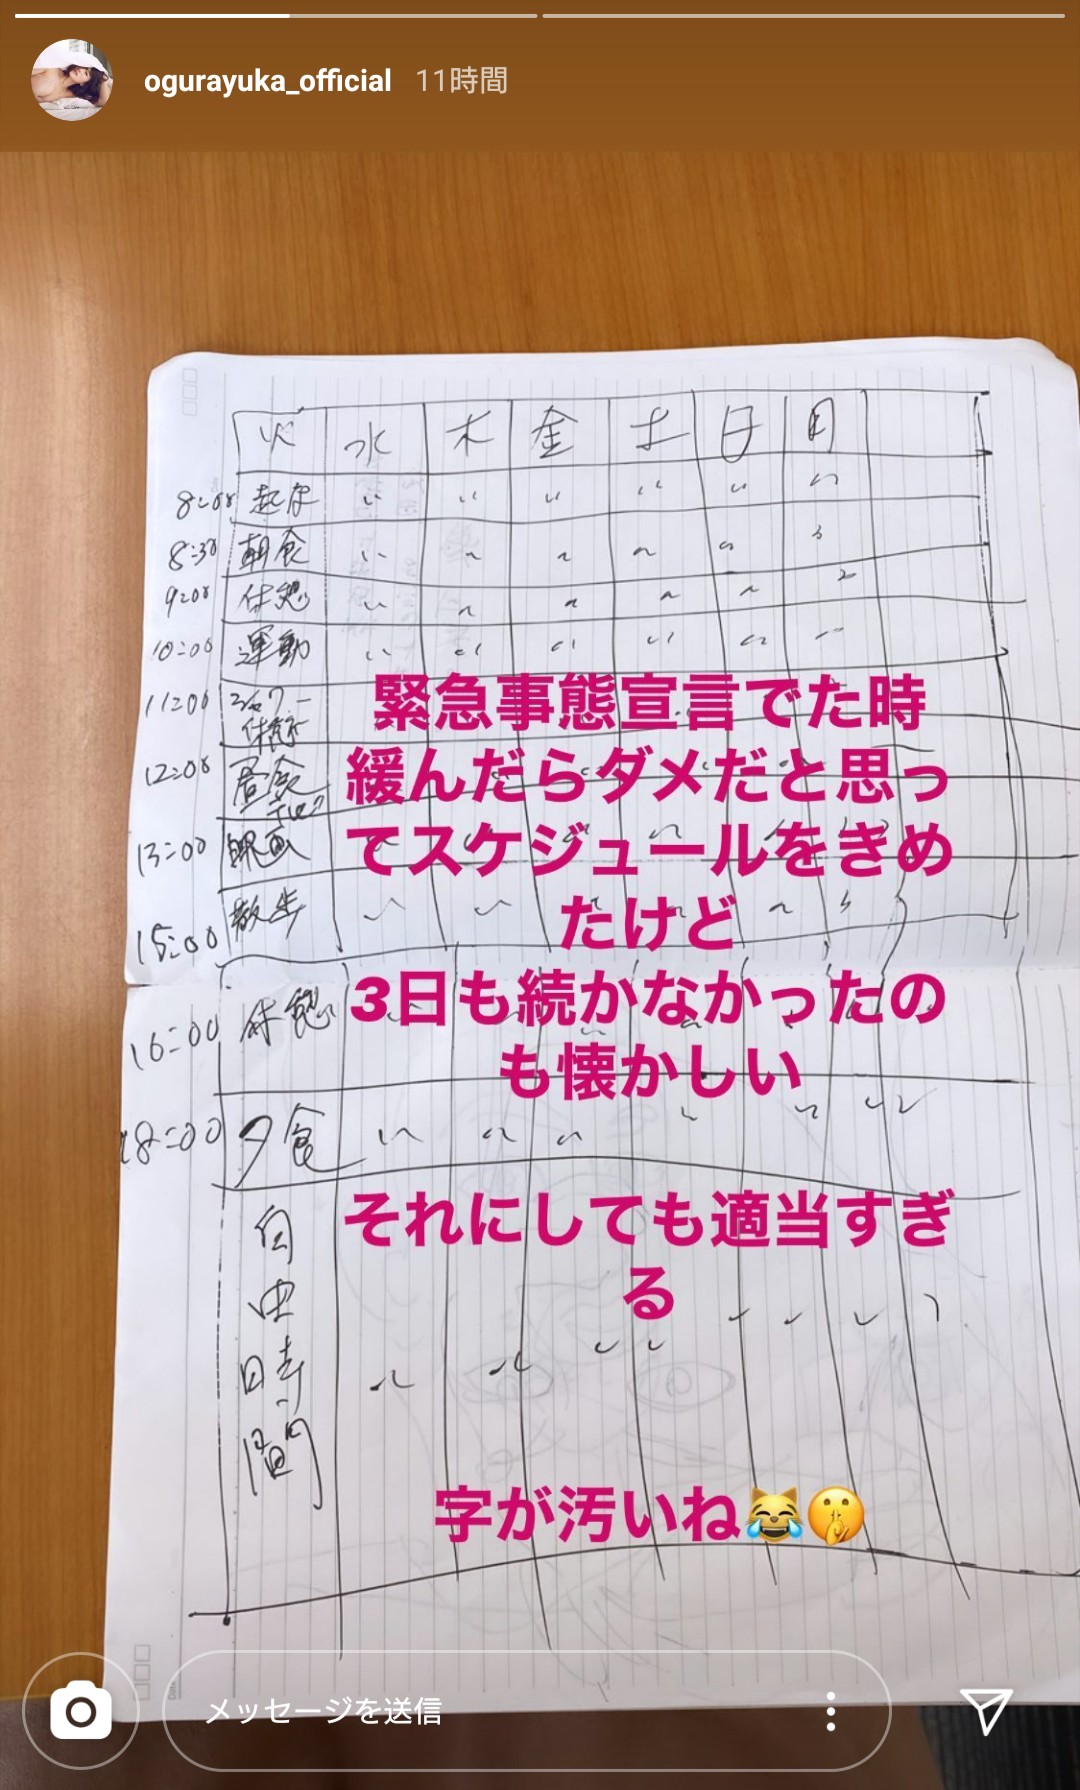 ogurayuka_official 11時間
火 水 木 金 土 日 月
8:00 起床
8:30 朝食
9:00 休憩
10:00 運動
11:00
休憩
12:00 昼食
13:00 映画
15:00 散歩
16:00 休憩
18:00 夕食
自
由
時
間
緊急事態宣言でた時
緩んだらダメだと思っ
てスケジュールをきめ
たけど
3日も続かなかったの
も懐かしい
それにしても適当すぎ
る
字が汚いね😹🤫
メッセージを送信